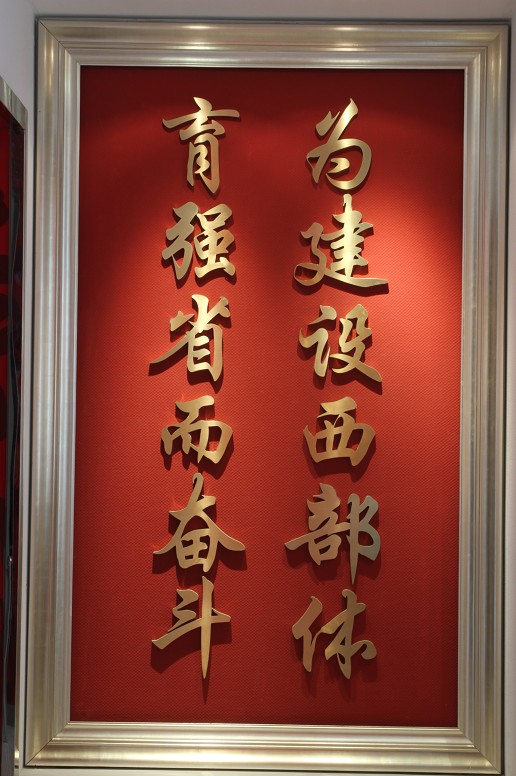 为建设西部体
育强省而奋斗